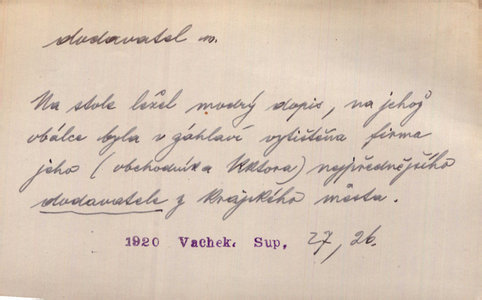 dodavatel m.
Na stole ležel modrý dopis, na jehož
obálce byla v záhlaví vytištěna firma
jeho (obchodníka Uktora) nejpřednějšího
dodavatele z krajského města.
1920 Vachek. Sup, 27, 26.